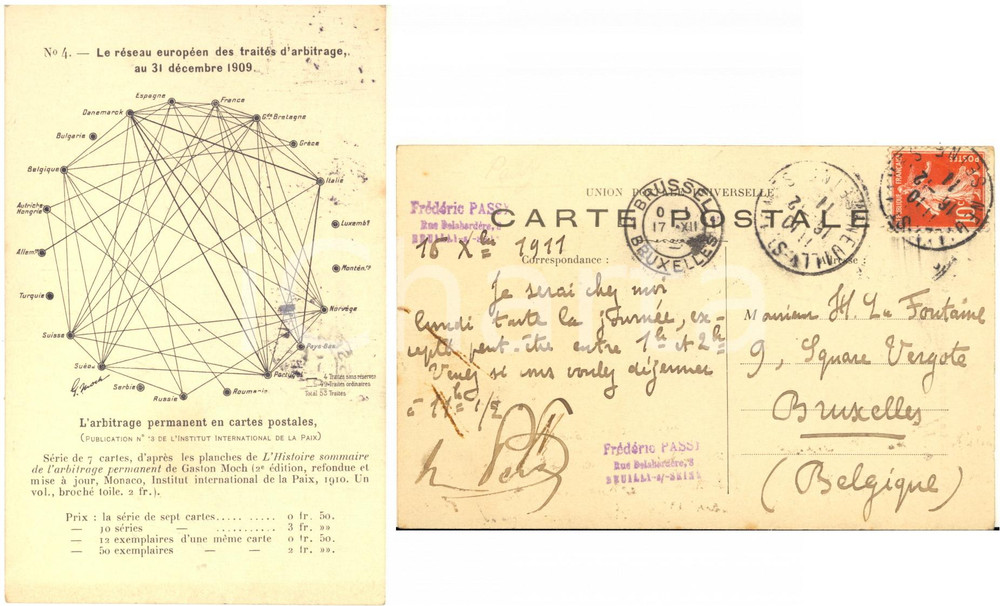 No 4. — Le réseau européen des traités d'arbitrage,
au 31 décembre 1909.
Espagne
France
Danemarck
Gde Bretagne
Bulgarie
Grèce
Belgique
Italie
Autriche
Hongrie
Luxambg
Allemne
Monténo
Turquie
Norvège
Suisse
Pays-Bas
Suède
Portugal
G. Moch
Serbie
Roumanie
Russie
4 Traités sans réserves
49 Traités ordinaires
Total 53 Traités.
L'arbitrage permanent en cartes postales,
(PUBLICATION No 3 DE L'INSTITUT INTERNATIONAL DE LA PAIX)
Série de 7 cartes, d'après les planches de L'Histoire sommaire
de l'arbitrage permanent de Gaston Moch (2e édition, refondue et
mise à jour, Monaco, Institut international de la Paix, 1910. Un
vol., broché toile. 2 fr.).
Prix : la série de sept cartes..... ..... 0 fr. 50.
— 10 séries — ........... 3 fr. »»
— 12 exemplaires d'une même carte 0 fr. 50.
— 50 exemplaires — — 2 fr. »».
UNION POSTALE UNIVERSELLE
CARTE POSTALE
Frédéric PASSY
Rue Delabordère, 8
NEUILLY-s/-SEINE
BRUSSEL
17 XII
BRUXELLES
NEUILLY-S
POSTES
10
16 Xbre 1911
Correspondance :
Adresse :
Je serai chez moi
lundi toute la journée, ex-
cepté peut-être entre 1h et 2h
Venez si vous voulez déjeuner
à 11h 1/2
Frédéric PASSY
Rue Delabordère, 8
NEUILLY-s/-SEINE
Monsieur H. La Fontaine
9, Square Vergote
Bruxelles
(Belgique)